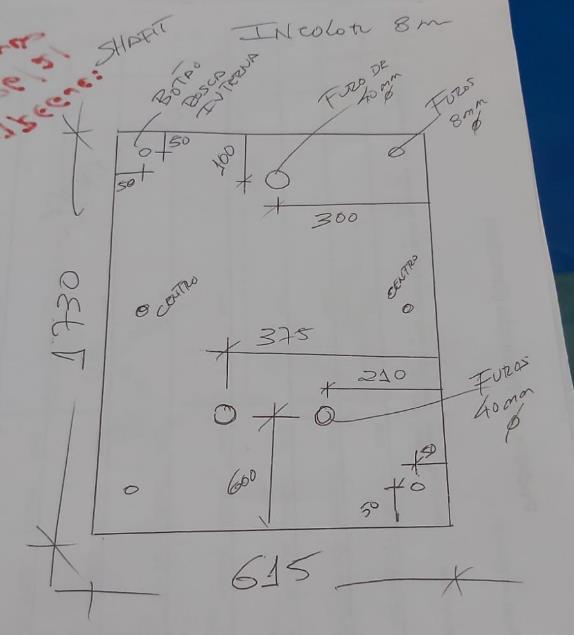 SHAFT
INColor 8m
BOTÃO
ROSCA
INTERNA
FURO DE
40mm
Ø
FUROS
8mm
Ø
50
50
100
300
1730
CENTRO
CENTRO
375
210
FUROS
40mm
Ø
600
50
50
615